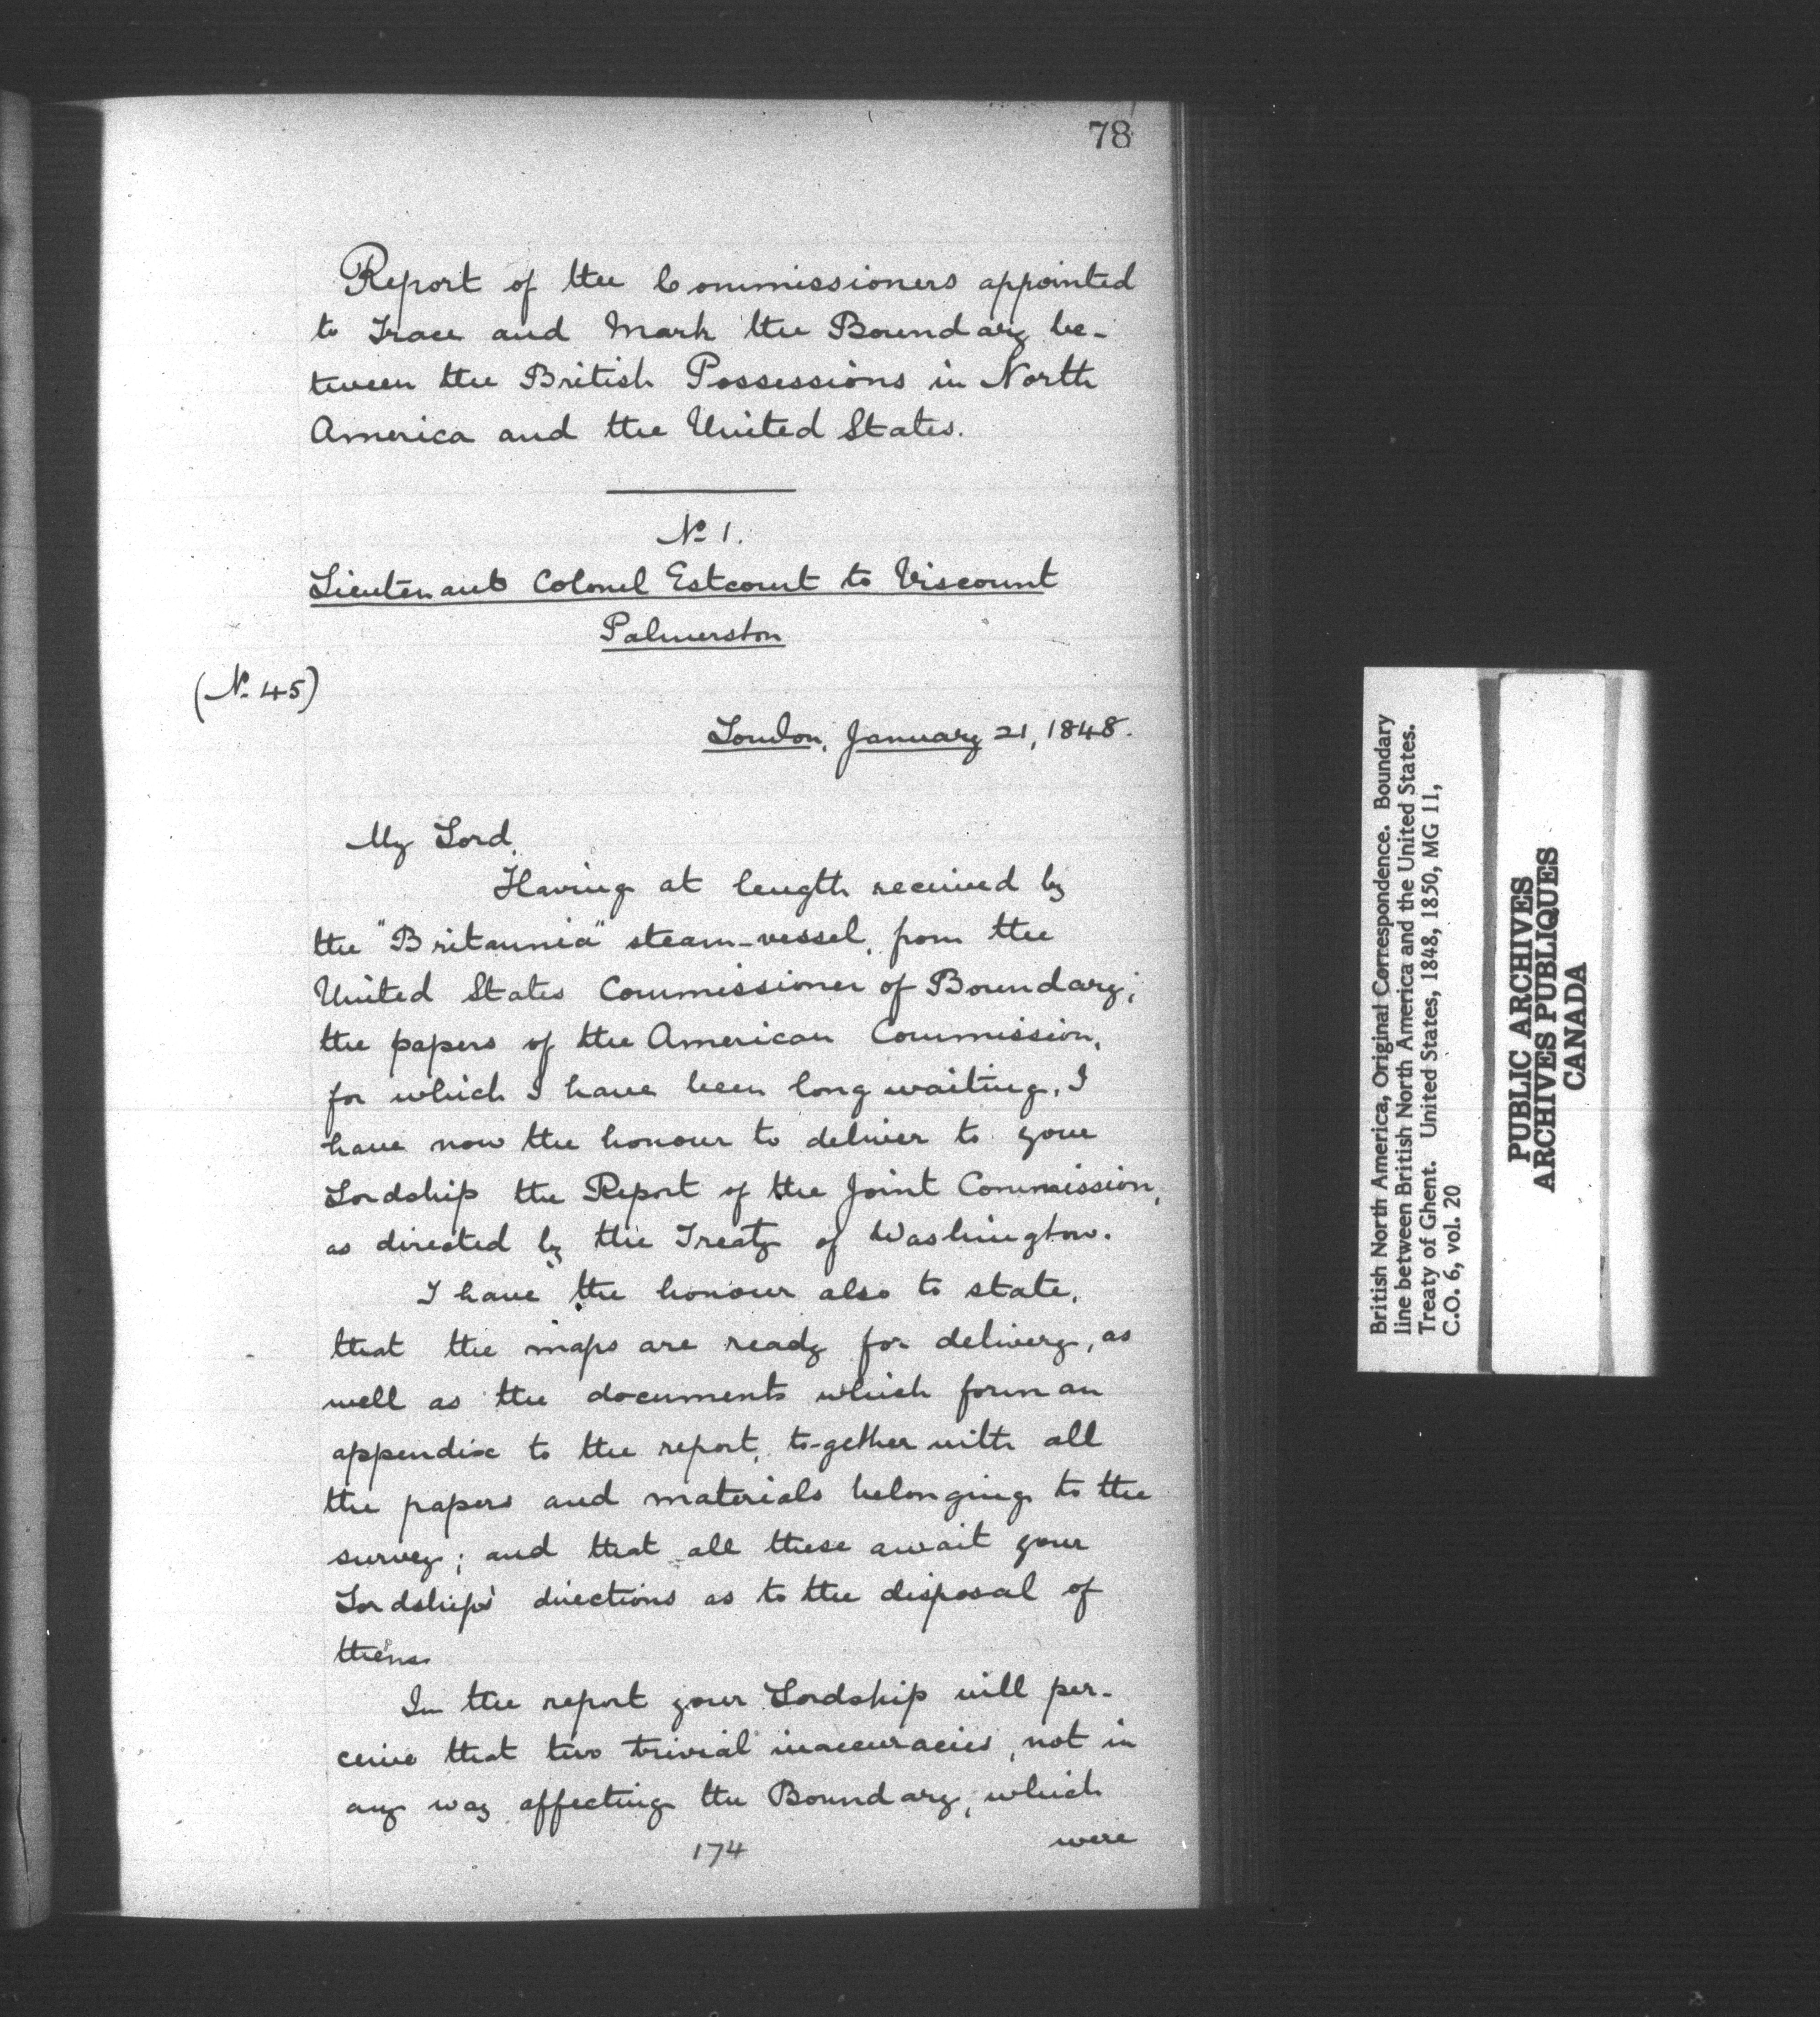 78
Report of the Commissioners appointed
to Trace and Mark the Boundary be-
tween the British Possessions in North
America and the United States.
No 1.
Lieutenant Colonel Estcourt to Viscount
Palmerston
(No. 45)
London, January 21, 1848.
My Lord,
Having at length received by
the "Britannia" steam-vessel, from the
United States Commissioner of Boundary,
the papers of the American Commission,
for which I have been long waiting, I
have now the honour to deliver to your
Lordship the Report of the Joint Commission,
as directed by the Treaty of Washington.
I have the honour also to state,
that the maps are ready for delivery, as
well as the documents which form an
appendix to the report, to-gether with all
the papers and materials belonging to the
survey; and that all these await your
Lordships' directions as to the disposal of
them.
In the report your Lordship will per-
ceive that two trivial inaccuracies, not in
any way affecting the Boundary, which
174
were
British North America, Original Correspondence. Boundary
line between British North America and the United States.
Treaty of Ghent. United States, 1848, 1850, MG 11,
C.O. 6, vol. 20
PUBLIC ARCHIVES
ARCHIVES PUBLIQUES
CANADA